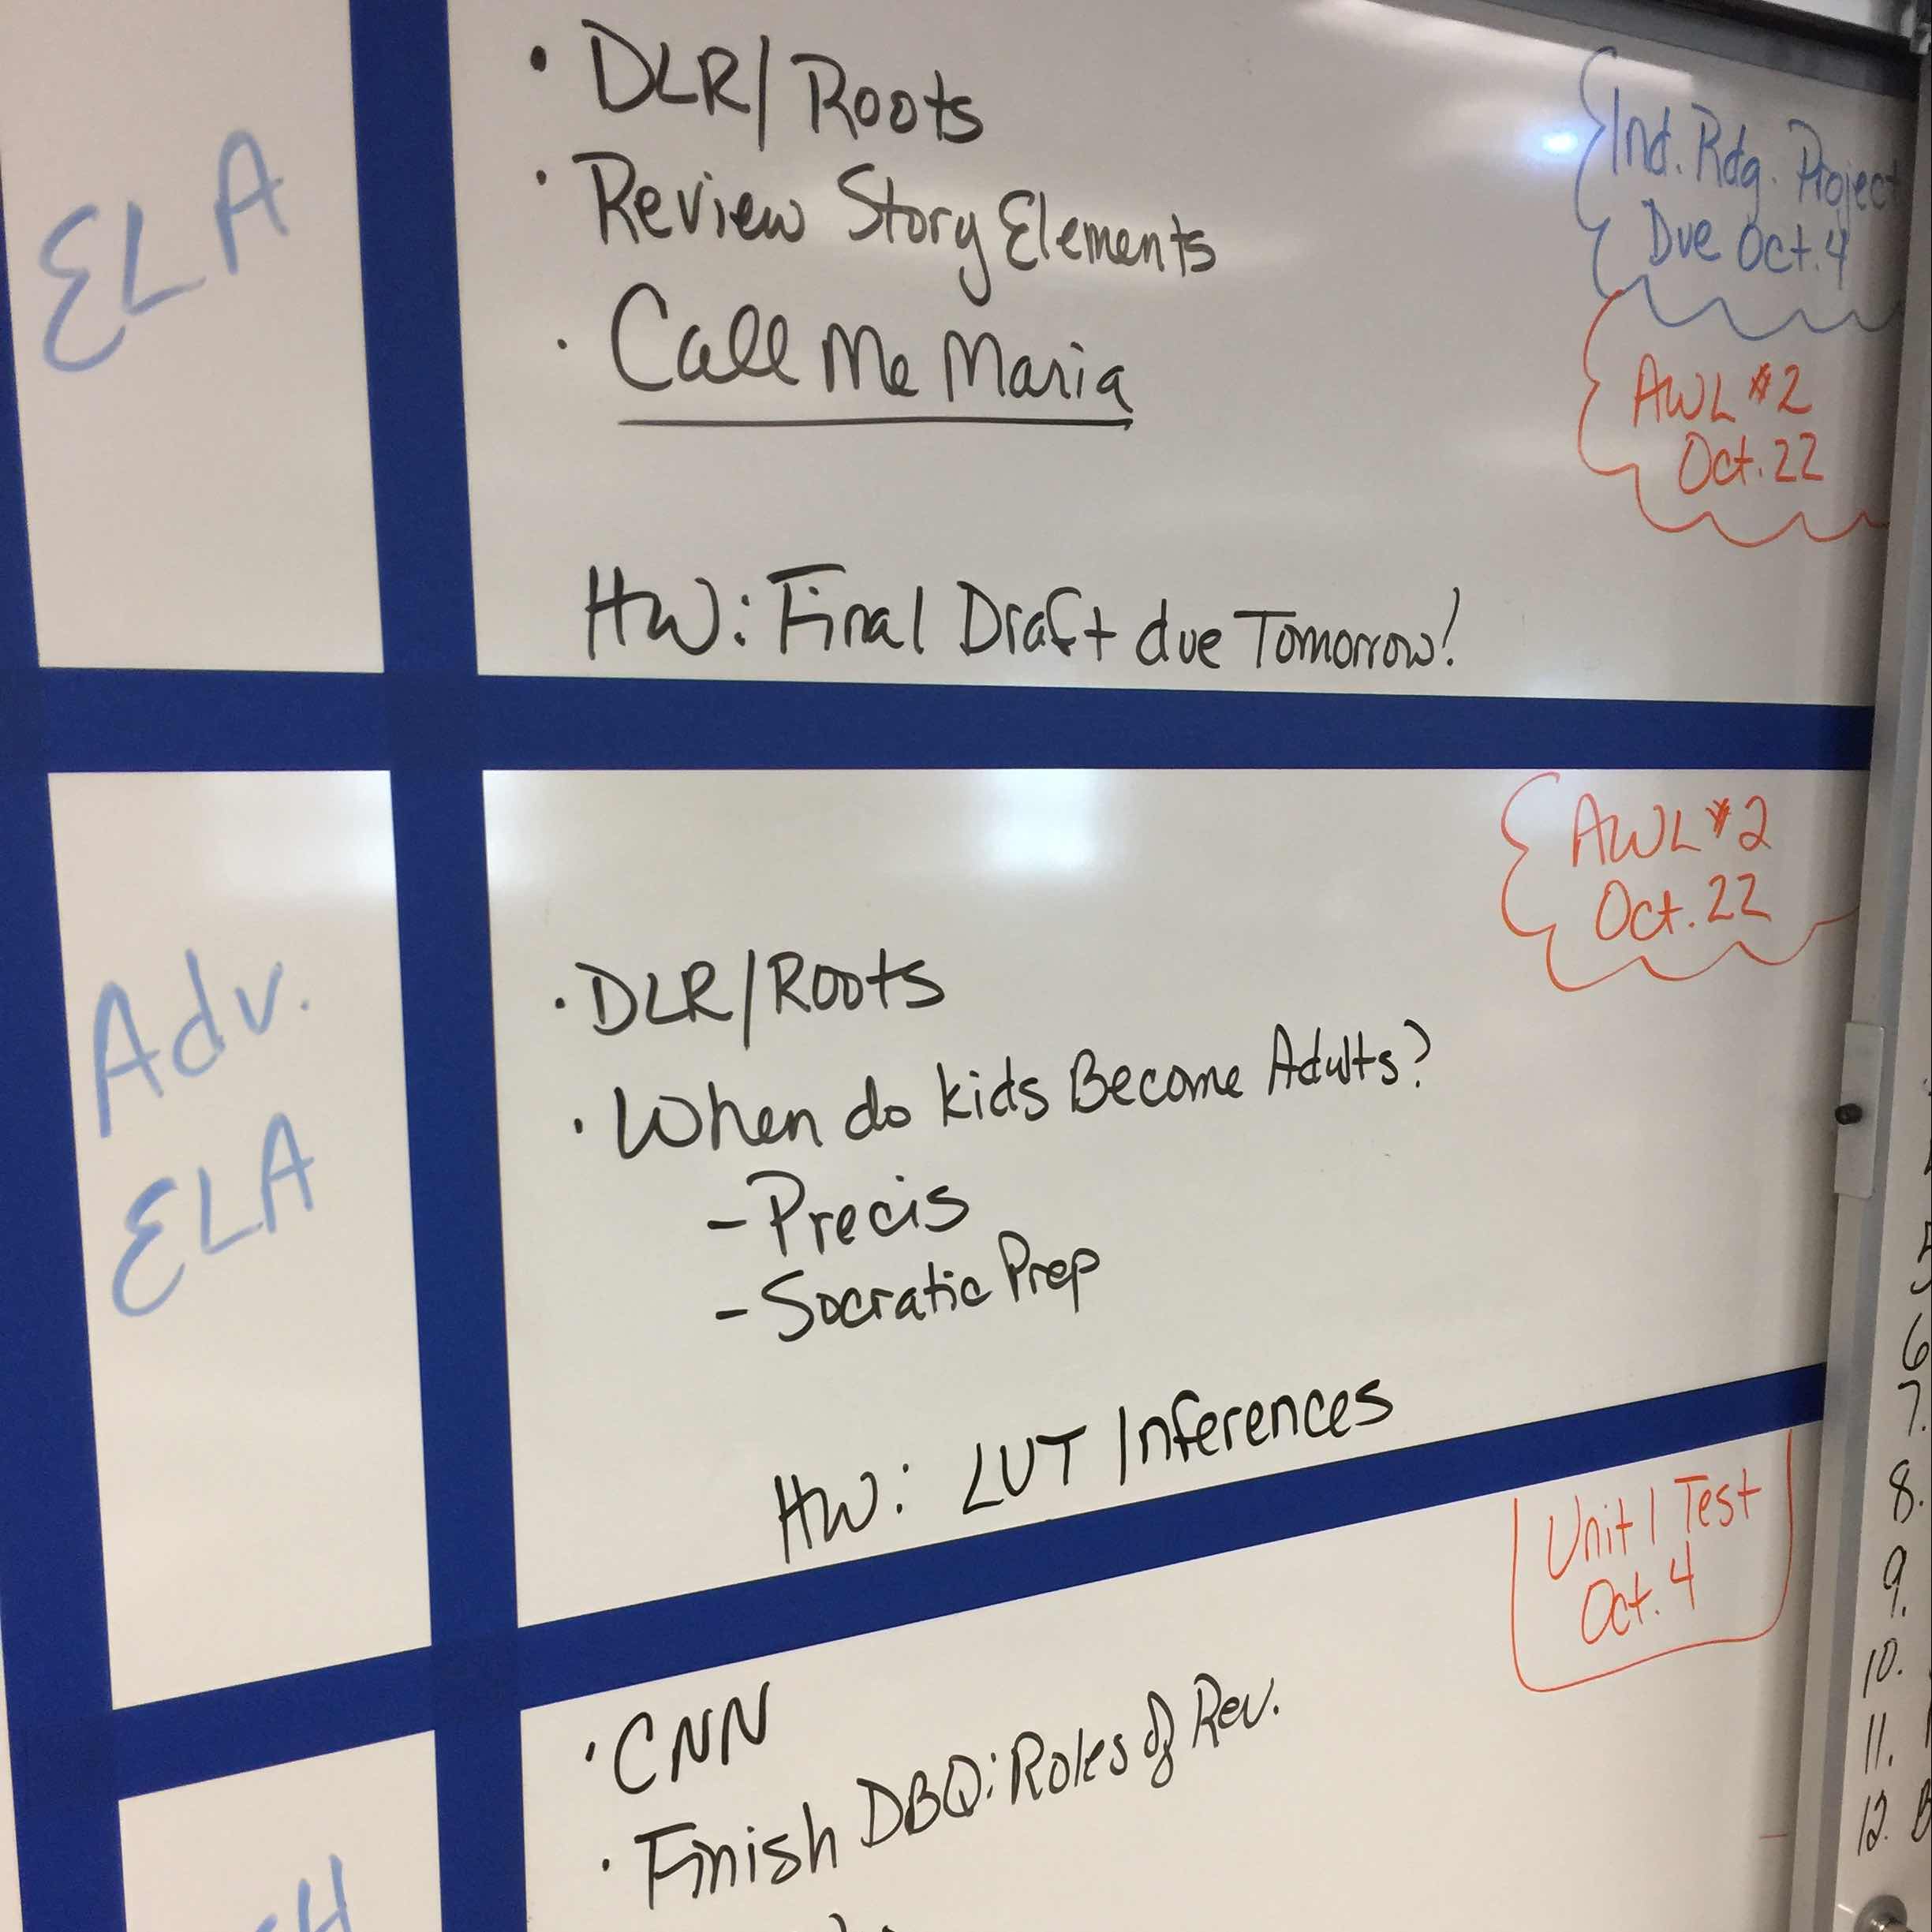 ELA
• DLR/Roots
• Review Story Elements
• Call Me Maria
HW: Final Draft due Tomorrow!
Ind. Rdg. Project
Due Oct. 4
AWL #2
Oct. 22
Adv.
ELA
AWL #2
Oct. 22
• DLR/Roots
• When do kids Become Adults?
- Precis
- Socratic Prep
HW: LUT Inferences
Unit 1 Test
Oct. 4
• CNN
• Finish DBQ: Roles of Rev.
5
6
7.
8.
9.
10.
11.
12. B